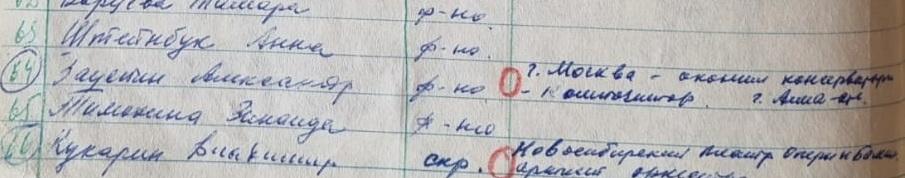 62 Тамара ф-но
63 Штейнбук Анна ф-но
64 Заустин Александр ф-но г. Москва - окончил консерватор
- Композитор. г. Алма-
65 Тимохина Зинаида ф-но
66 Кукарин Владимир скр. Новосибирский театр оперы и бал